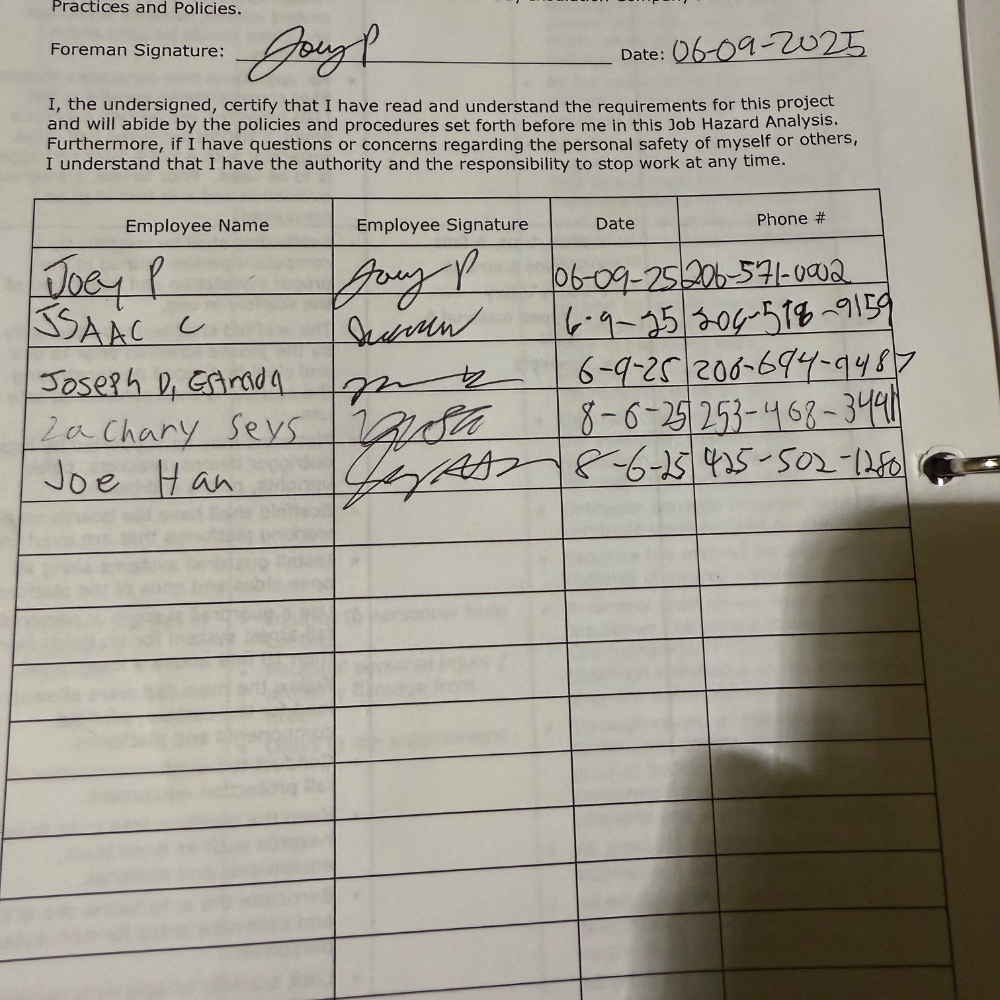 Practices and Policies.
Foreman Signature: Joey P Date: 06-09-2025
I, the undersigned, certify that I have read and understand the requirements for this project
and will abide by the policies and procedures set forth before me in this Job Hazard Analysis.
Furthermore, if I have questions or concerns regarding the personal safety of myself or others,
I understand that I have the authority and the responsibility to stop work at any time.
Employee Name Employee Signature Date Phone #
Joey P Joey P 06-09-25 206-571-0002
ISAAC C 6-9-25
Joseph D, Estrada 6-9-25 206-694-9487
Zachary Seys 8-6-25 253-468-3441
Joe Han 8-6-25 425-502-1280